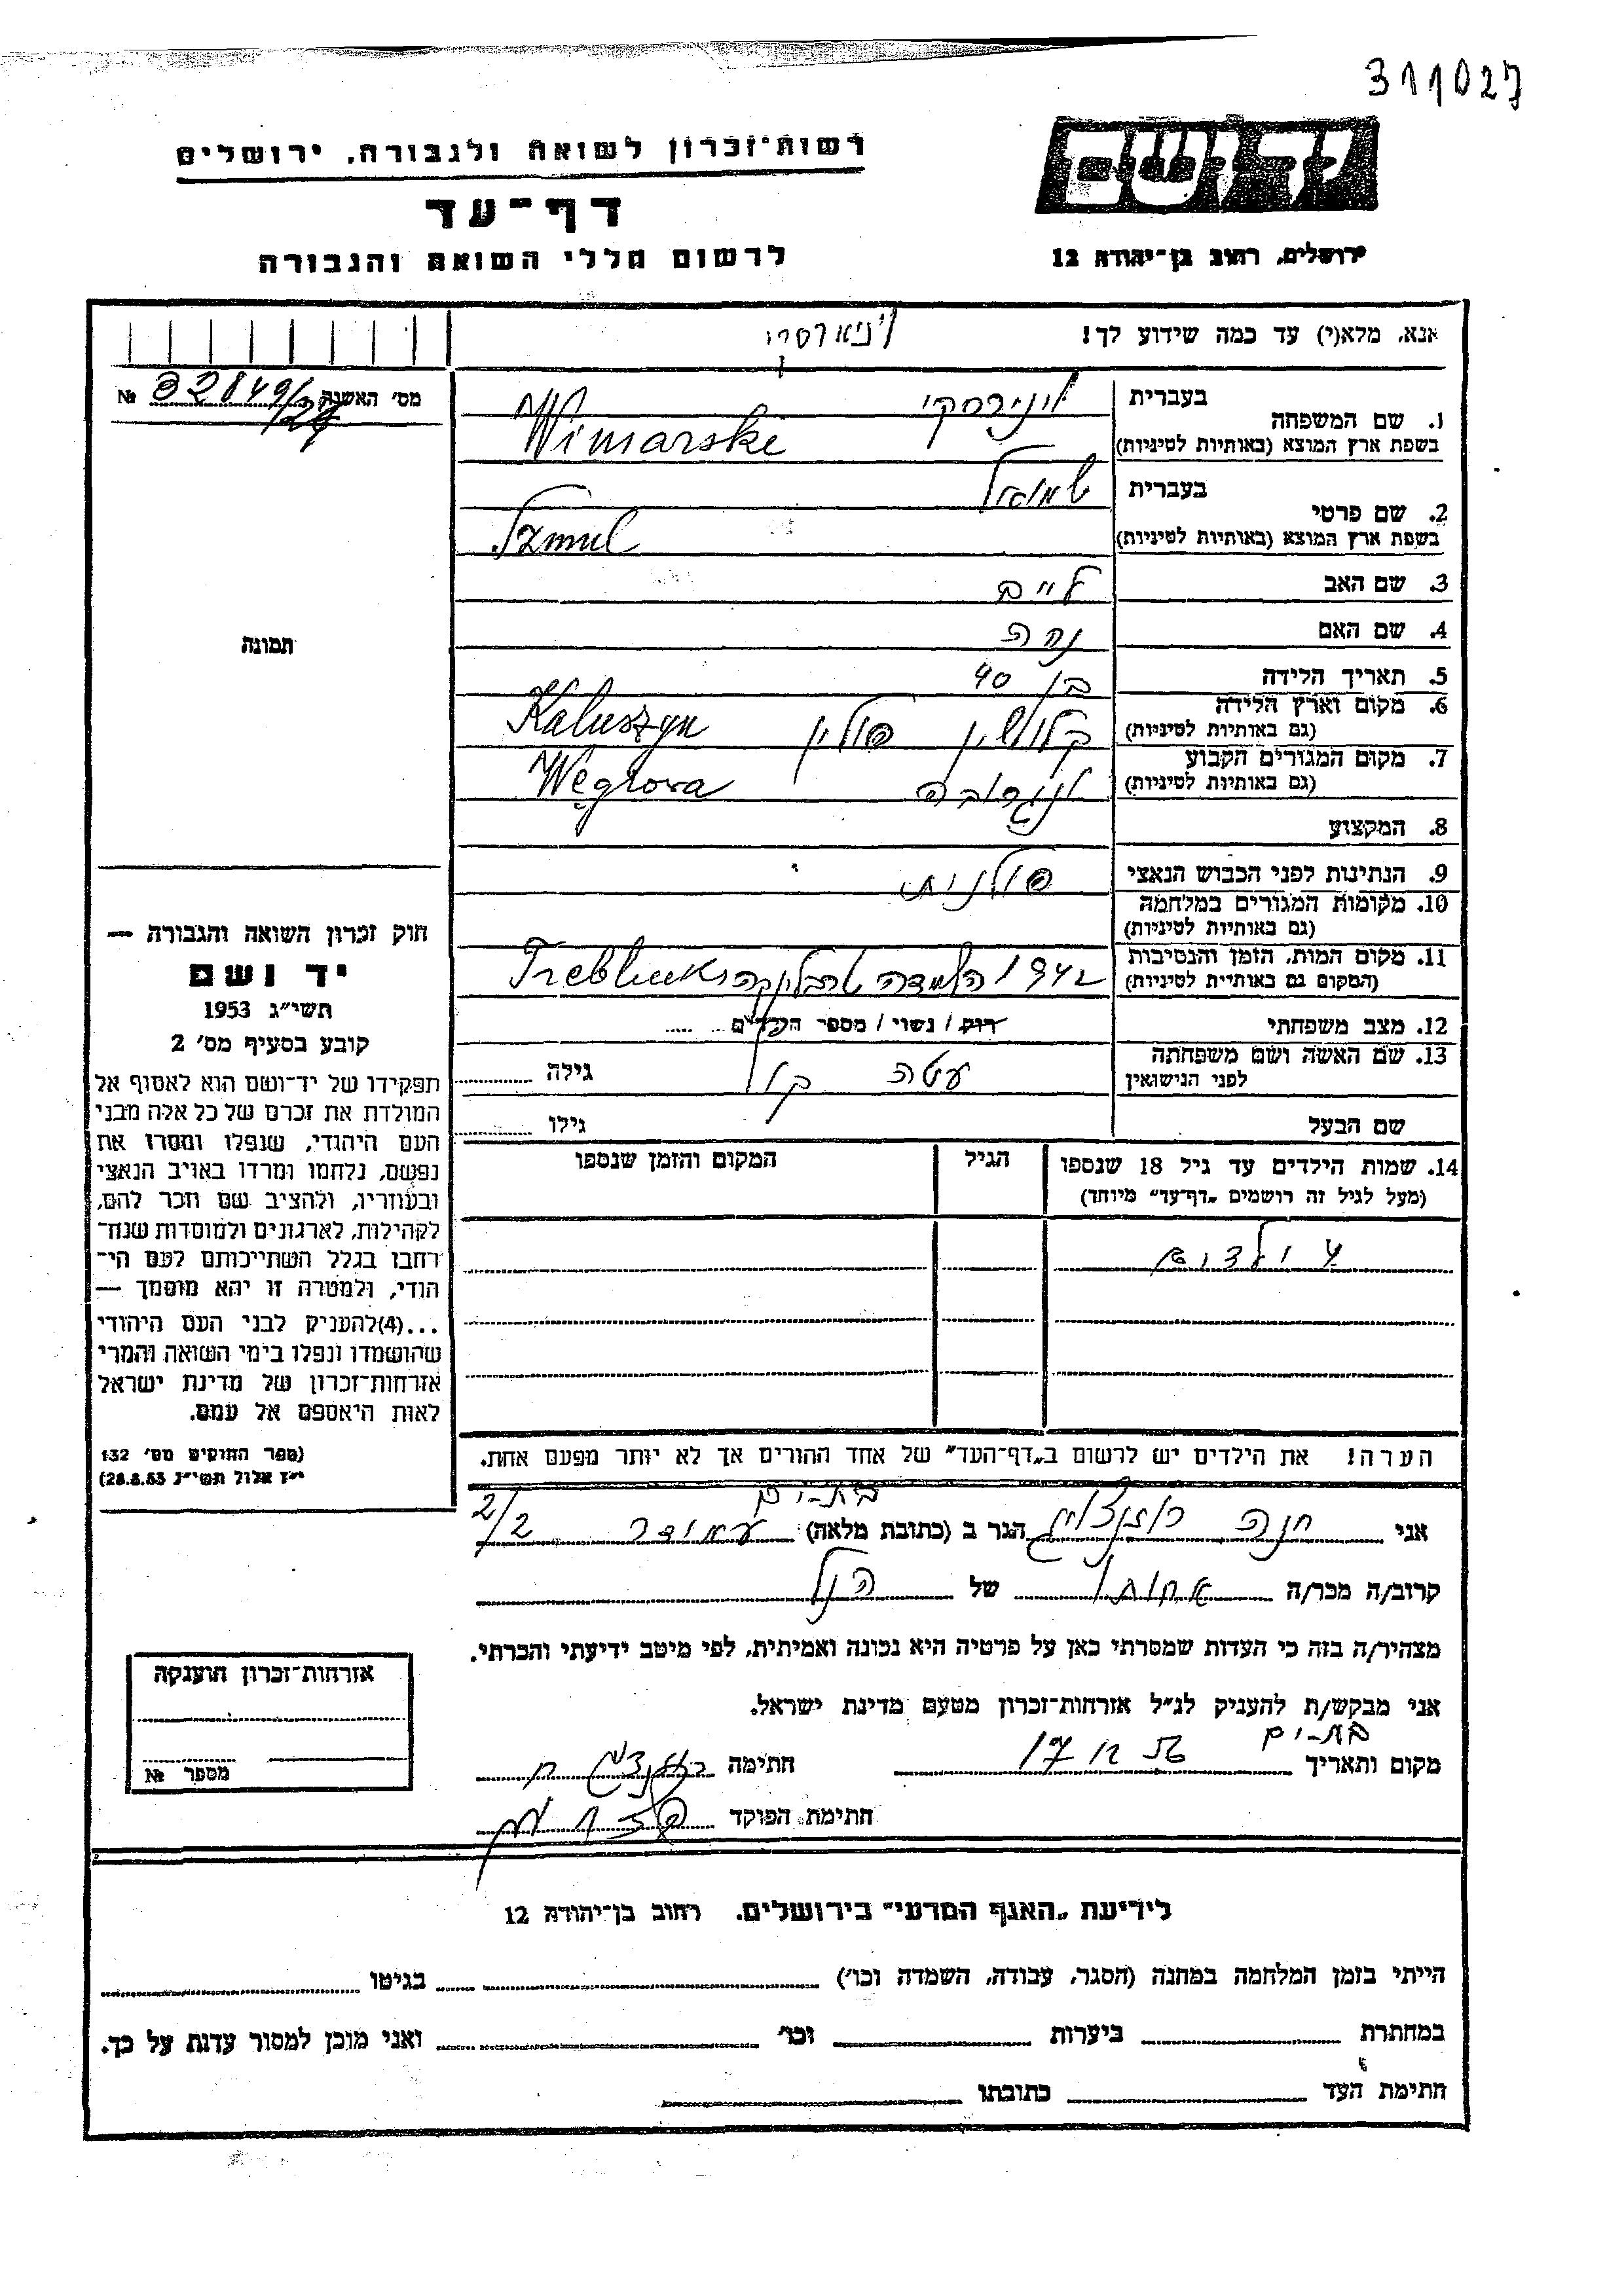 311027
יד ושם
ירושלים, רחוב בן־יהודה 12
רשות־זכרון לשואה ולגבורה, ירושלים
דף־עד
לרשום חללי השואה והגבורה
אנא, מלא(י) עד כמה שידוע לך!
מס׳ האשנה № 32849/27
תמונה
1. שם המשפחה
בעברית
בשפת ארץ המוצא (באותיות לטיניות) Winiarski
2. שם פרטי
בעברית שמואל
בשפת ארץ המוצא (באותיות לטיניות) Szmul
3. שם האב חיים
4. שם האם
5. תאריך הלידה בן 40
6. מקום וארץ הלידה קלושין פולין Kaluszyn
(גם באותיות לטיניות)
7. מקום המגורים הקבוע ונגרובה Węgrova
(גם באותיות לטיניות)
8. המקצוע
9. הנתינות לפני הכבוש הנאצי פולנית
10. מקומות המגורים במלחמה
(גם באותיות לטיניות)
11. מקום המות, הזמן והנסיבות 1942 השמדה טרבלינקה
(המקום גם באותיות לטיניות)
12. מצב משפחתי רוק / נשוי / מספר הילדים
13. שם האשה ושם משפחתה
לפני הנישואין
גילה
שם הבעל גילו
14. שמות הילדים עד גיל 18 שנספו
(מעל לגיל זה רושמים „דף־עד" מיוחד)
הגיל
המקום והזמן שנספו
ילדים
הערה! את הילדים יש לרשום ב„דף־העד" של אחד ההורים אך לא יותר מפעם אחת.
חוק זכרון השואה והגבורה —
יד ושם
תשי״ג 1953
קובע בסעיף מס׳ 2
תפקידו של יד־ושם הוא לאסוף אל
המולדת את זכרם של כל אלה מבני
העם היהודי, שנפלו ומסרו את
נפשם, נלחמו ומרדו באויב הנאצי
ובעוזריו, ולהציב שם וזכר להם,
לקהילות, לארגונים ולמוסדות שנח־
רחבו בגלל השתייכותם לעם הי־
הודי, ולמטרה זו יהא מוסמך —
...(4)להעניק לבני העם היהודי
שהושמדו ונפלו בימי השואה והמרי
אזרחות־זכרון של מדינת ישראל
לאות היאספם אל עמם.
(ספר החוקים מס׳ 132
י״ז אלול תשי״ג 28.8.53)
בת-ים
אני חנה הגר ב (כתובת מלאה) 2/2
קרוב/ה מכר/ה אחותו של הנ״ל
מצהיר/ה בזה כי העדות שמסרתי כאן על פרטיה היא נכונה ואמיתית, לפי מיטב ידיעתי והכרתי.
אני מבקש/ת להעניק לנ״ל אזרחות־זכרון מטעם מדינת ישראל.
בת-ים
מקום ותאריך חתימה
חתימת הפוקד
אזרחות־זכרון הוענקה
מספר №
לידיעת „האגף המדעי" בירושלים. רחוב בן־יהודה 12
הייתי בזמן המלחמה במחנה (הסגר, עבודה, השמדה וכו׳) בגיטו
במחתרת ביערות וכו׳ ואני מוכן למסור עדות על כך.
חתימת העד כתובתו